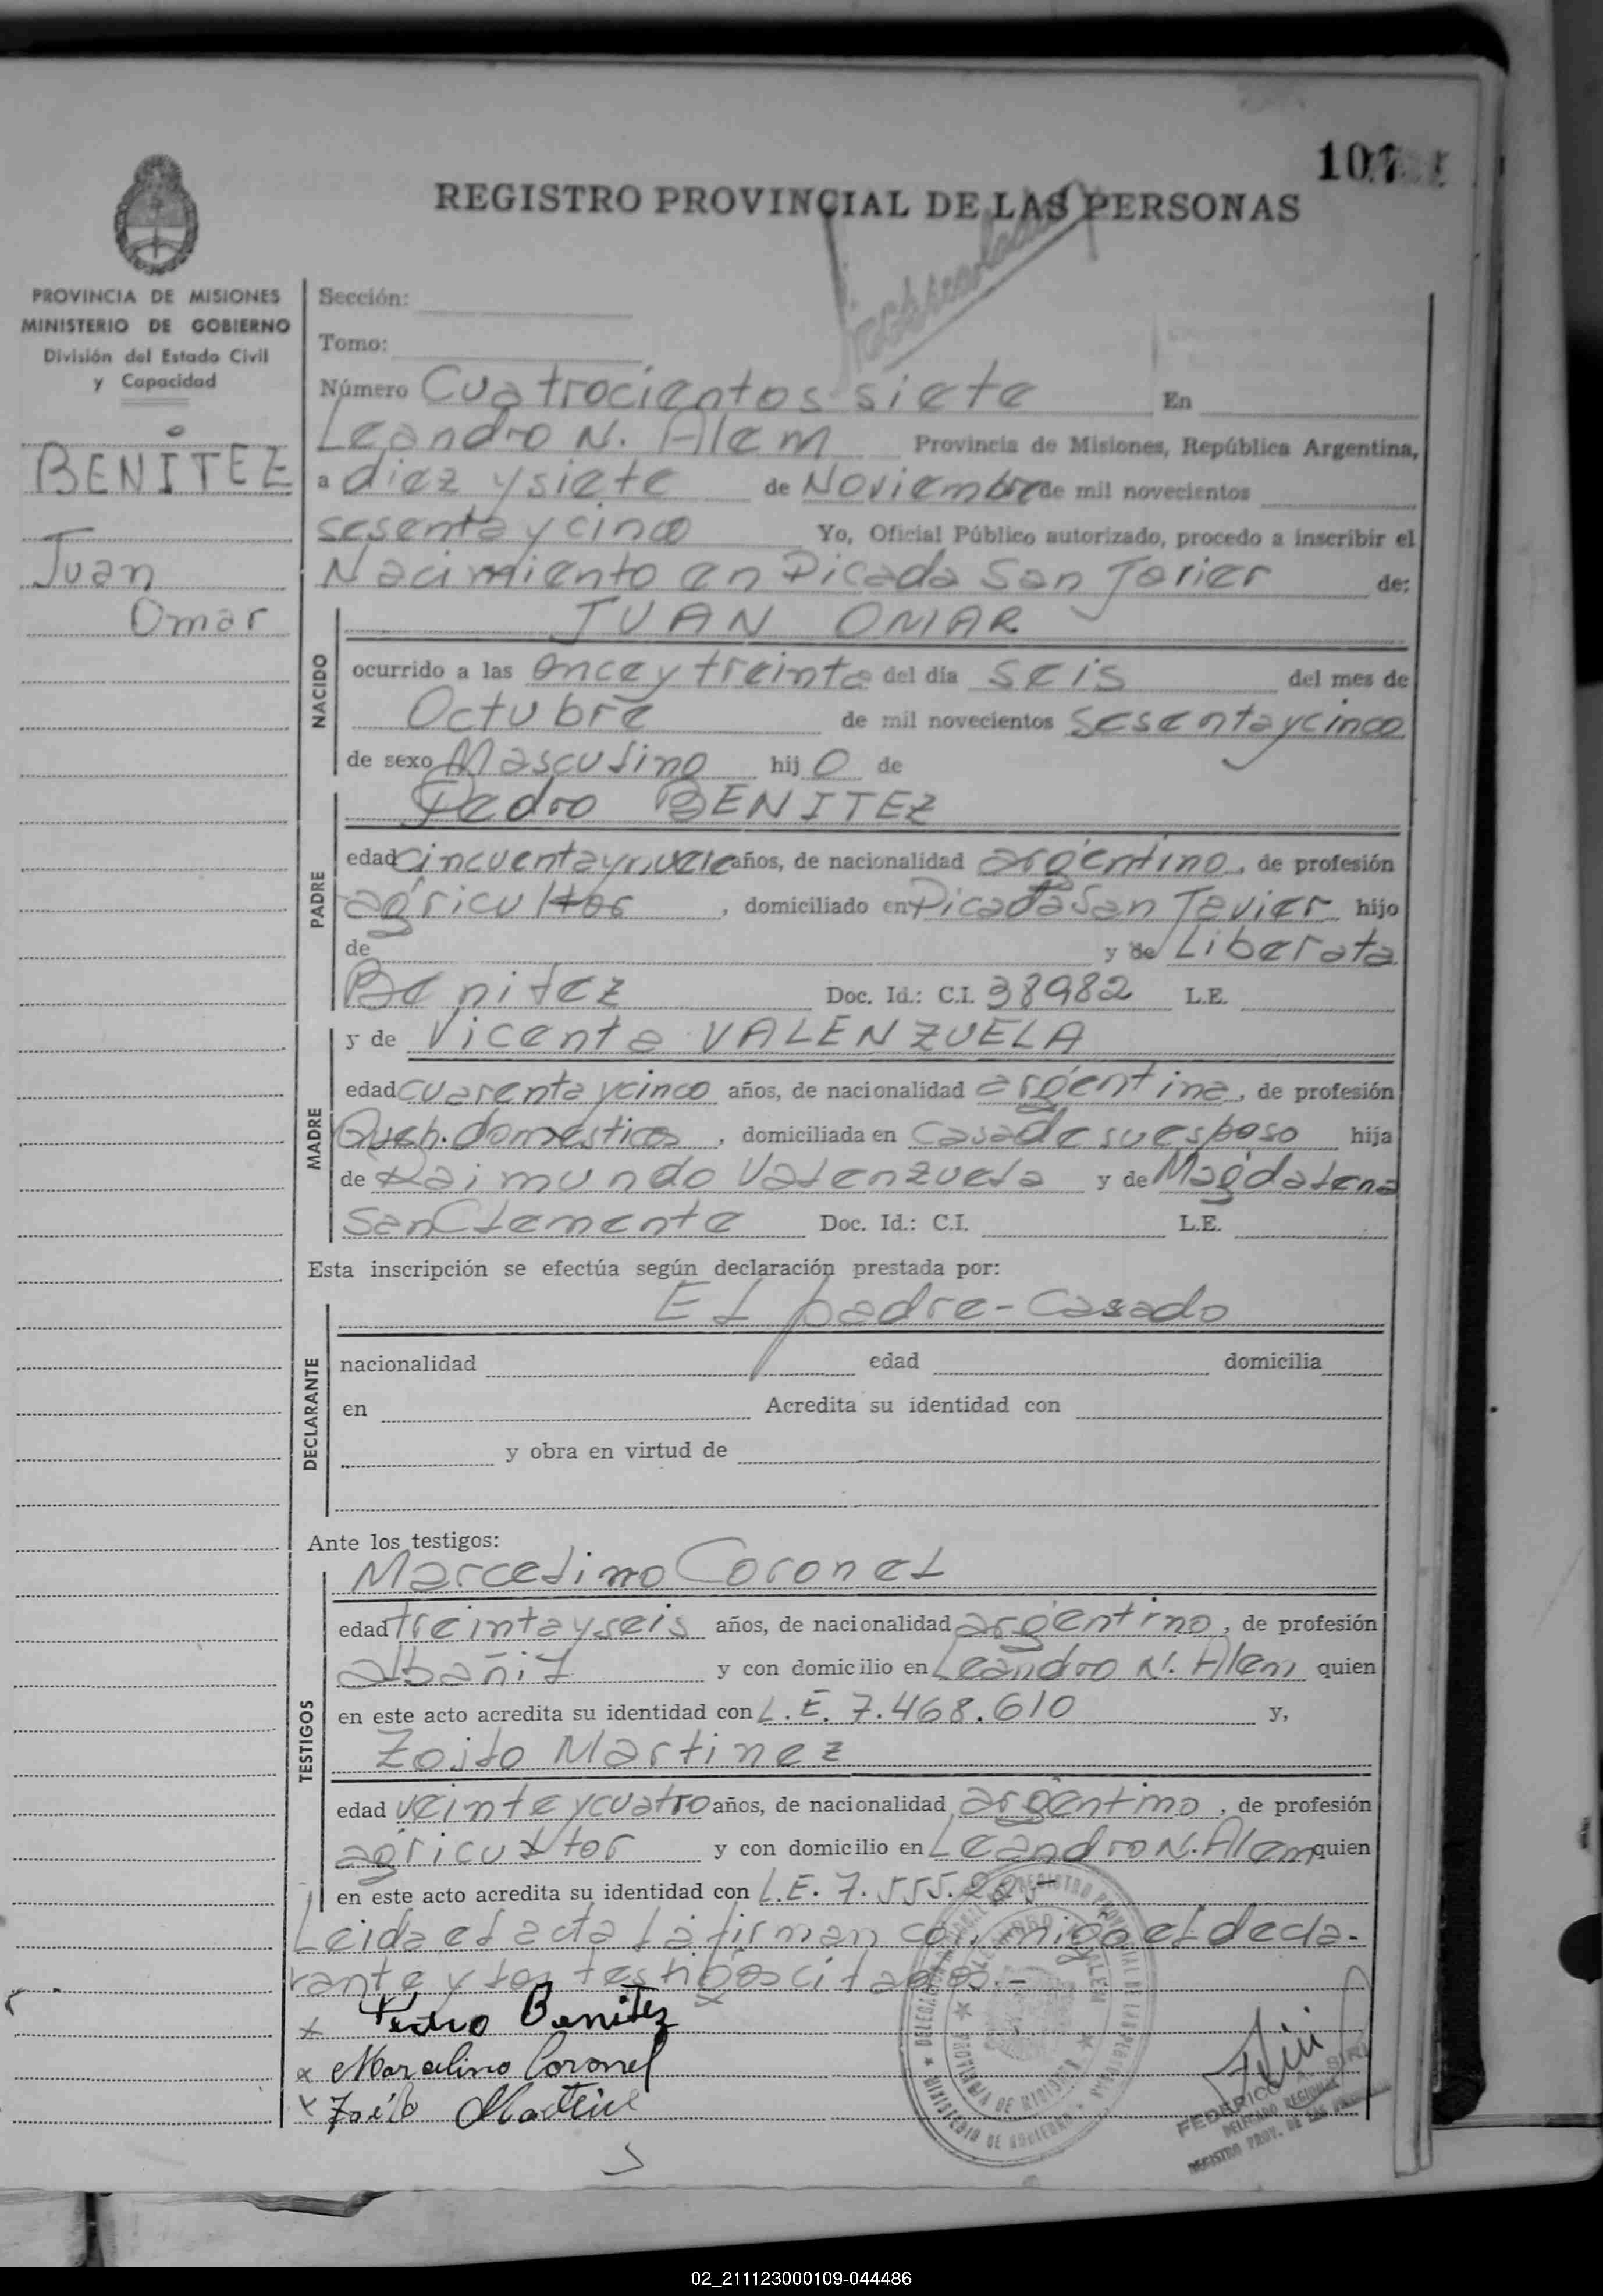 107
REGISTRO PROVINCIAL DE LAS PERSONAS
PROVINCIA DE MISIONES
MINISTERIO DE GOBIERNO
División del Estado Civil
y Capacidad
BENITEZ
Juan
Omar
Sección:
Tomo:
Número Cuatrocientos siete En
Leandro N. Alem Provincia de Misiones, República Argentina,
a diez y siete de Noviembre de mil novecientos
sesenta y cinco Yo, Oficial Público autorizado, procedo a inscribir el
Nacimiento en Picada San Javier de:
NACIDO
JUAN OMAR
ocurrido a las once y treinta del día seis del mes de
Octubre de mil novecientos sesenta y cinco
de sexo Masculino hij o de
PADRE
Pedro BENITEZ
edad cincuenta y nueve años, de nacionalidad argentino, de profesión
agricultor, domiciliado en Picada San Javier hijo
de y de Liberata
Benitez Doc. Id.: C.I. 38982 L.E.
MADRE
y de Vicenta VALENZUELA
edad cuarenta y cinco años, de nacionalidad argentina, de profesión
Queh. domesticos, domiciliada en casa de su esposo hija
de Raimundo Valenzuela y de Magdalena
San Clemente Doc. Id.: C.I. L.E.
Esta inscripción se efectúa según declaración prestada por:
DECLARANTE
El padre - Casado
nacionalidad edad domicilia
en Acredita su identidad con
y obra en virtud de
Ante los testigos:
TESTIGOS
Marcelino Coronel
edad treinta y seis años, de nacionalidad argentino, de profesión
albañil y con domicilio en Leandro N. Alem quien
en este acto acredita su identidad con L.E. 7.468.610 y,
Zoilo Martinez
edad veinte y cuatro años, de nacionalidad argentino, de profesión
agricultor y con domicilio en Leandro N. Alem quien
en este acto acredita su identidad con L.E. 7.555.
Leida el acta la firman conmigo el decla-
rante y los testigos citados.-
x Pedro Benitez
x Marcelino Coronel
x Zoilo Martinez
MINISTERIO DE GOBIERNO
PROVINCIA DE MISIONES
FEDERICO A. SIRI
DELEGADO REGIONAL
REGISTRO PROV. DE LAS PERSONAS
02_211123000109-044486